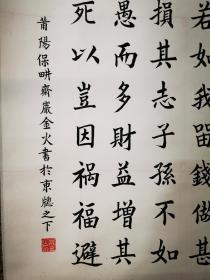 若如我留錢做甚
損其志子孫不如
愚而多財益增其
死以豈因禍福避
莆陽保畊齋嚴金火書於東牕之下